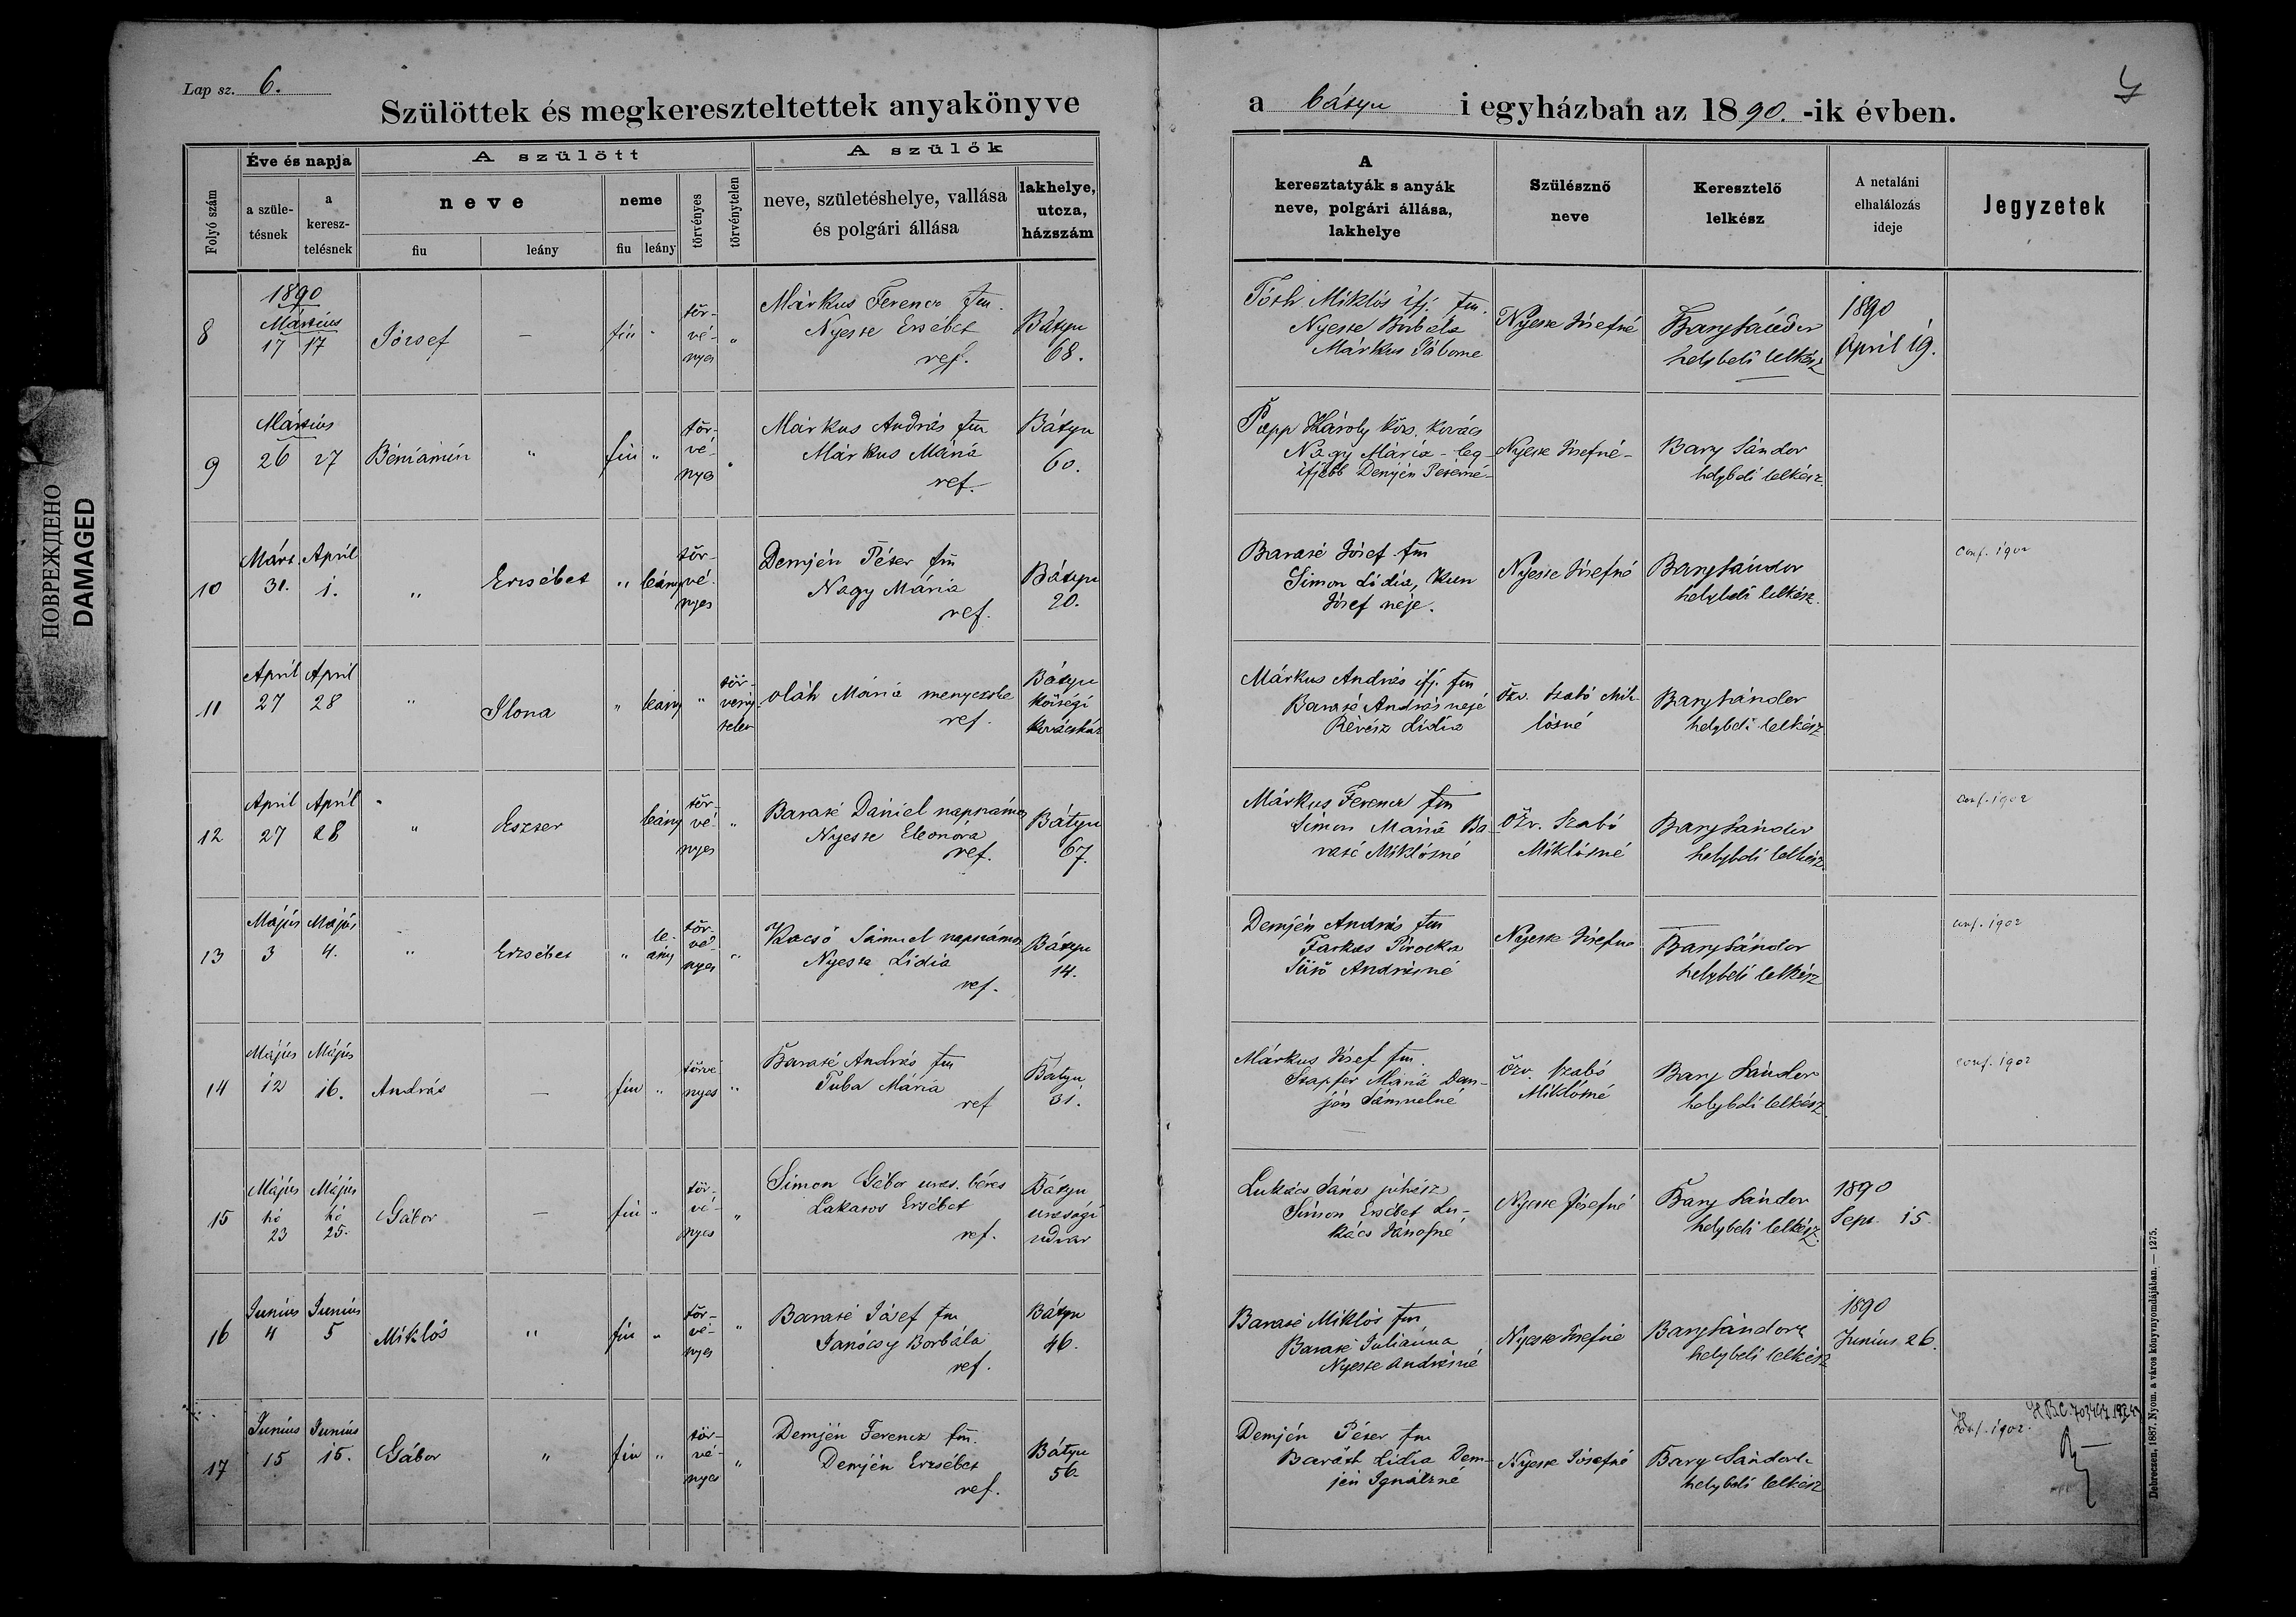 ПОВРЕЖДЕНО
DAMAGED
Lap sz. 6.
Szülöttek és megkereszteltettek anyakönyve
a bátyu i egyházban az 1890.-ik évben.
Folyó szám
Éve és napja
a szüle-
tésnek
a
keresz-
telésnek
A szülött
neve
fiu
leány
neme
fiu
leány
törvényes
törvénytelen
A szülők
neve, születéshelye, vallása
és polgári állása
lakhelye,
utcza,
házszám
A
keresztatyák s anyák
neve, polgári állása,
lakhelye
Szülésznő
neve
Keresztelő
lelkész
A netaláni
elhalálozás
ideje
Jegyzetek
8
1890
Mártius
17 17
József
—
fiu "
tör-
vé-
nyes
"
Márkus Ferencz fm.
Nyeste Ersébet
ref.
Bátyu
68.
Tóth Miklós ifj. fm.
Nyeste Borbála
Márkus Gáborne
Nyeste Józsefné
Bary Sándor
helybeli lelkész
1890
April 19.
9
Mártius
26 27
Béniámin
"
fiu "
tör-
vé-
nyes
"
Márkus András fm
Márkus Mária
ref.
Bátyu
60.
Papp Károly kovács
Nagy Mária - leg-
ifjabb Demjén Péterné-
Nyeste Józsefné-
Bary Sándor
helybeli lelkész.
10
Márt. April
31. 1.
"
Erzsébet
" leány
tör-
vé-
nyes
Demjén Péter fm
Nagy Mária
ref.
Bátyu
20.
Baraté József fm
Simon Lidia, Kun
József neje.
Nyeste Józsefné
Bary Sándor
helybeli lelkész.
conf. 1902
11
April April
27 28
"
Ilona
" leány
"
tör-
vény-
telen
oláh Mária menyecske
ref.
Bátyu
községi
kovácsház
Márkus András ifj. fm
Baraté András neje
Révész Lidia
özv. Szabó Mik-
lósné
Bary Sándor
helybeli lelkész
12
April April
27 28
"
Eszter
leány
tör-
vé-
nyes
"
Baraté Dániel napszámos
Nyeste Eleonóra
ref.
Bátyu
67.
Márkus Ferencz fm
Simon Mária Ba-
raté Miklósné
özv. Szabó
Miklósné
Bary Sándor
helybeli lelkész
conf. 1902
13
Május Május
3 4.
"
Erzsébet
"
le-
ány
tör-
vé-
nyes
"
Kacsó Sámuel napszámos
Nyeste Lidia
ref.
Bátyu
14.
Demjén András fm
Farkas Piroska
Sütő Andrásné
Nyeste Józsefné
Bary Sándor
helybeli lelkész
conf. 1902
14
Május Május
12 16.
András
—
fiu "
törvé
nyes
"
Baraté András fm
Tuba Mária
ref
Bátyu
31.
Márkus József fm.
Mária Dem-
jén Sámuelné
özv. Szabó
Miklósné
Bary Sándor
helybeli lelkész
conf. 1902
15
Május Május
hó hó
23 25.
Gábor
—
fiu "
tör-
vé-
nyes
"
Simon Gábor uras. béres
Lakatos Ersébet
ref.
Bátyu
urasági
udvar
Lukács János juhász
Simon Ersébet Lu-
kács Jánosné
Nyeste Józsefné
Bary Sándor
helybeli lelkész.
1890
Sept. 15.
16
Junius Junius
4 5
Miklós
"
fiu "
tör-
vé-
nyes
"
Baraté József fm
Janócsy Borbála
ref.
Bátyu
46.
Baraté Miklós fm
Baraté Juliánna
Nyeste Andrásné
Nyeste Józsefné
Bary Sándor
helybeli lelkész
1890
Junius 26.
17
Junius Junius
15 15.
Gábor
"
fiu "
tör-
vé-
nyes
"
Demjén Ferencz fm.
Demjén Erzsébet
ref.
Bátyu
56
Demjén Péter fm
Baráth Lidia Dem-
jén Ignátzné
Nyeste Józsefné
Bary Sándor
helybeli lelkész
Konf. 1902.
Debreczen, 1887. Nyom. a város könyvnyomdájában. — 1275.